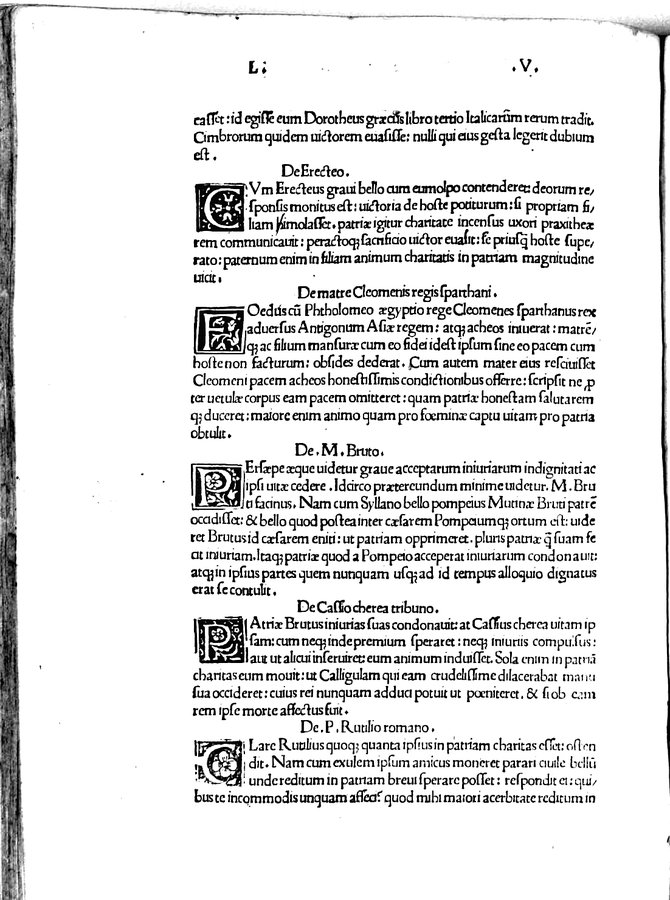 L: .V.
casset: id egisse eum Dorotheus græcus libro tertio Italicarũm rerum tradit.
Cimbrorum quidem uictorem euasisse: nulli qui eius gesta legerit dubium
est.
De Erecteo.
CVm Erecteus graui bello cum eumolpo contenderet: deorum re/
sponsis monitus est: uictoria de hoste potiturum: si propriam fi/
liam īmolasset. patriæ igitur charitate incensus uxori praxitheæ
rem communicauit: peractoq; sacrificio uictor euasit: se priusq̃ hoste supe/
rato: paternum enim in filiam animum charitatis in patriam magnitudine
uicit.
De matre Cleomenis regis sparthani.
FOedus cũ Phtholomeo ægyptio rege Cleomenes sparthanus rex
aduersus Antigonum Asiæ regem: atq; acheos iniuerat: matrẽ/
q; ac filium mansuræ cum eo fidei idest ipsum sine eo pacem cum
hoste non facturum: obsides dederat. Cum autem mater eius resciuisset
Cleomeni pacem acheos honestissimis condictionibus offerre: scripsit ne ,p
pter uetulæ corpus eam pacem omitteret: quam patriæ honestam salutarem
q; duceret: maiore enim animo quam pro fœminæ captu uitam pro patria
obtulit.
De .M. Bruto.
PErsæpe æque uidetur graue acceptarum iniuriarum indignitati ac
ipsi uitæ cedere. Idcirco prætereundum minime uidetur. M. Bru
ti facinus. Nam cum Syllano bello pompeius Mutinæ Bruti patrẽ
occidisset: & bello quod postea inter cæsarem Pompeiumq; ortum est: uide
ret Brutus id cæsarem eniti: ut patriam opprimeret. pluris patriæ q̃ suam fe
cit iniuriam. Itaq; patriæ quod a Pompeio acceperat iniuriarum condonauit:
atq; in ipsius partes quem nunquam usq; ad id tempus alloquio dignatus
erat se contulit.
De Cassio cherea tribuno.
PAtriæ Brutus iniurias suas condonauit: at Cassius cherea uitam ip
sam: cum neq; inde premium speraret: neq; iniuriis compulsus:
aut ut alicui inseruiret: eum animum induisset. Sola enim in patriã
charitas eum mouit: ut Calligulam qui eam crudelissime dilacerabat manu
sua occideret: cuius rei nunquam adduci potuit ut pœniteret. & si ob eam
rem ipse morte affectus fuit.
De .P. Rutilio romano.
CLare Rutilius quoq; quanta ipsius in patriam charitas esset: osten
dit. Nam cum exulem ipsum amicus moneret parari ciuile bellũ
unde reditum in patriam breui sperare posset: respondit ei: qui/
bus te incommodis unquam affeci? quod mihi maiori acerbitate reditum in